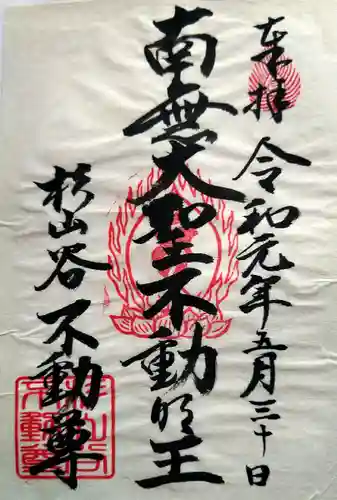 奉拝
令和元年五月三十日
南無大聖不動明王
杉山谷
不動尊